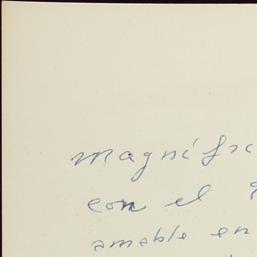 magnífic
con el
amable en